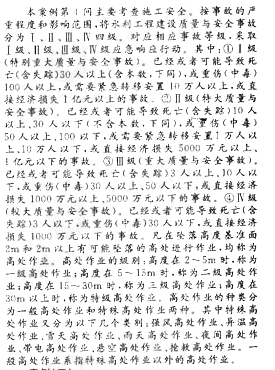 本案例第1问主要考查施工安全。按事故的严
重程度和影响范围,将水利工程建设质量与安全事故
分为Ⅰ、Ⅱ、Ⅲ、Ⅳ四级。对应相应事故等级,采取
Ⅰ级、Ⅱ级、Ⅲ级、Ⅳ级应急响应行动。其中:①Ⅰ级
(特别重大质量与安全事故)。已经或者可能导致死
亡(含失踪)30人以上(含本数,下同),或重伤(中毒)
100人以上,或需要紧急转移安置10万人以上,或直
接经济损失1亿元以上的事故。②Ⅱ级(特大质量与
安全事故)。已经或者可能导致死亡(含失踪)10人
以上、30人以下(不含本数,下同),或重伤(中毒)
50人以上、100以下,或需要紧急转移安置1万人以
上、10万人以下,或直接经济损失5000万元以上、
1亿元以下的事故。③Ⅲ级(重大质量与安全事故)。
已经或者可能导致死亡(含失踪)3人以上、10人以
下,或重伤(中毒)30人以上、50人以下,或直接经济
损失1000万元以上、5000万元以下的事故。④Ⅳ级
(较大质量与安全事故)。已经或者可能导致死亡(含
失踪)3人以下,或重伤(中毒)30人以下,或直接经
济损失1000万元以下的事故。凡在坠落高度基准面
2m和2m以上有可能坠落的高处进行作业,均称为
高处作业。高处作业的级别:高度在2~5m时,称为
一级高处作业;高度在5~15m时,称为二级高处作
业;高度在15~30m时,称为三级高处作业;高度在
30m以上时,称为特级高处作业。高处作业的种类分
为一般高处作业和特殊高处作业两种。其中特殊高
处作业又分为以下几个类别:强风高处作业、异温高
处作业、雪天高处作业、雨天高处作业、夜间高处作
业、带电高处作业、悬空高处作业、抢救高处作业。一
般高处作业系指特殊高处作业以外的高处作业。